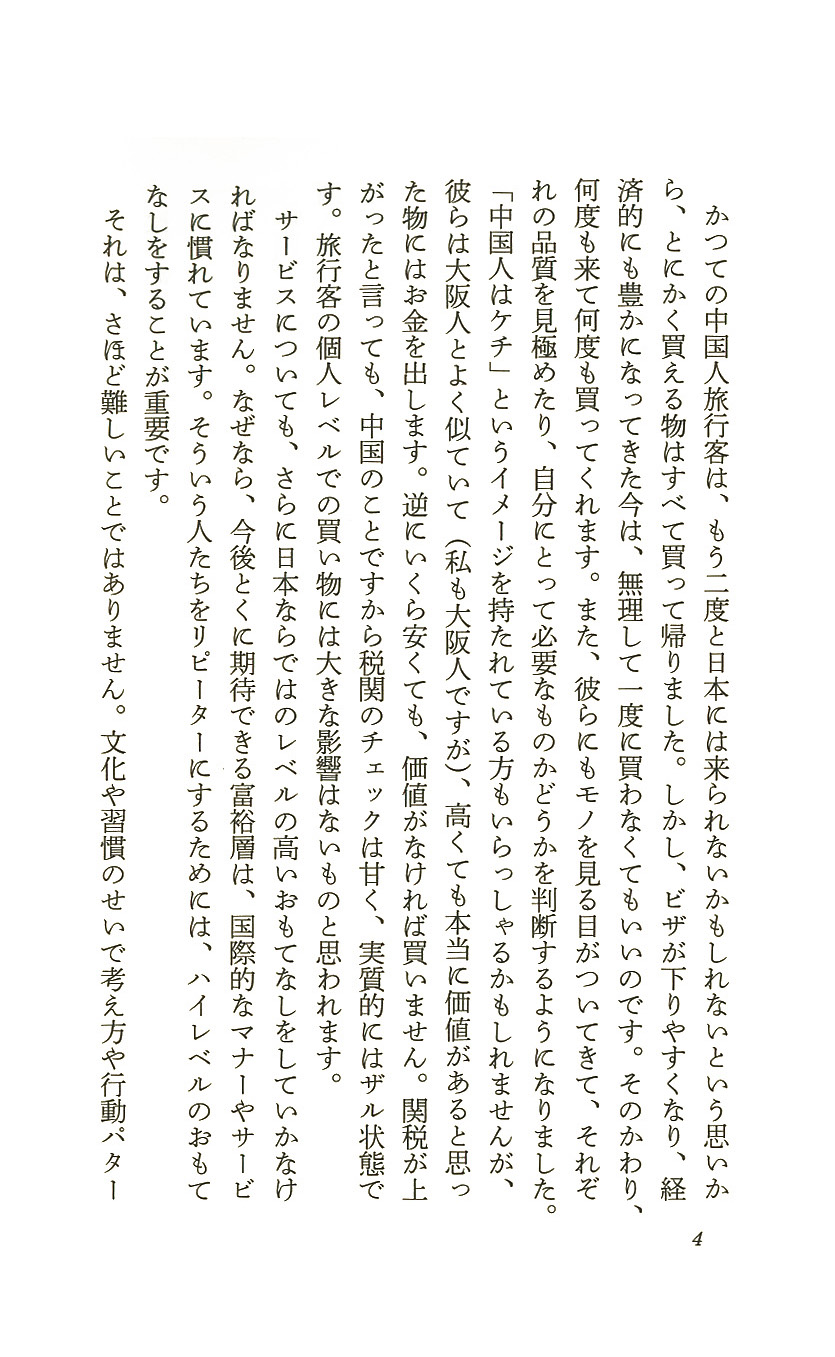 かつての中国人旅行客は、もう二度と日本には来られないかもしれないという思いか
ら、とにかく買える物はすべて買って帰りました。しかし、ビザが下りやすくなり、経
済的にも豊かになってきた今は、無理して一度に買わなくてもいいのです。そのかわり、
何度も来て何度も買ってくれます。また、彼らにもモノを見る目がついてきて、それぞ
れの品質を見極めたり、自分にとって必要なものかどうかを判断するようになりました。
「中国人はケチ」というイメージを持たれている方もいらっしゃるかもしれませんが、
彼らは大阪人とよく似ていて（私も大阪人ですが）、高くても本当に価値があると思っ
た物にはお金を出します。逆にいくら安くても、価値がなければ買いません。関税が上
がったと言っても、中国のことですから税関のチェックは甘く、実質的にはザル状態で
す。旅行客の個人レベルでの買い物には大きな影響はないものと思われます。
サービスについても、さらに日本ならではのレベルの高いおもてなしをしていかなけ
ればなりません。なぜなら、今後とくに期待できる富裕層は、国際的なマナーやサービ
スに慣れています。そういう人たちをリピーターにするためには、ハイレベルのおもて
なしをすることが重要です。
それは、さほど難しいことではありません。文化や習慣のせいで考え方や行動パター
4